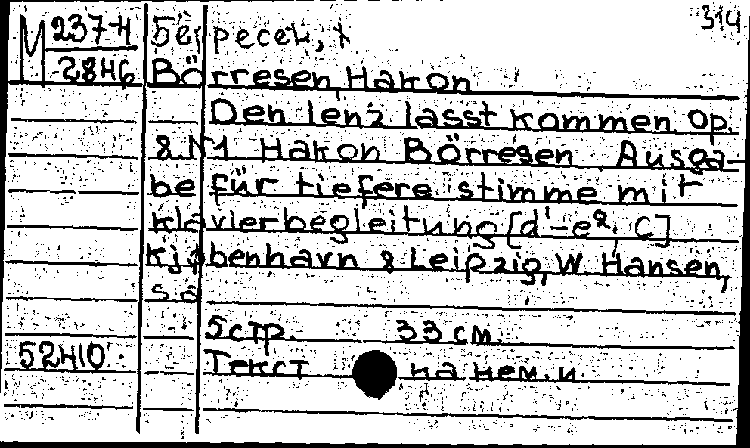 314
М 237-Н Бёрресен, Х
2846 Börresen, Hakon
Den lenz lasst kommen op.
8 N1 Hakon Börresen. Ausga-
be für tiefere stimme mit
klavierbegleitung [d'-e², C]
Kjøbenhavn & Leipzig, W. Hansen,
sa
5 стр. 33 см.
52410. Текст на нем. и.